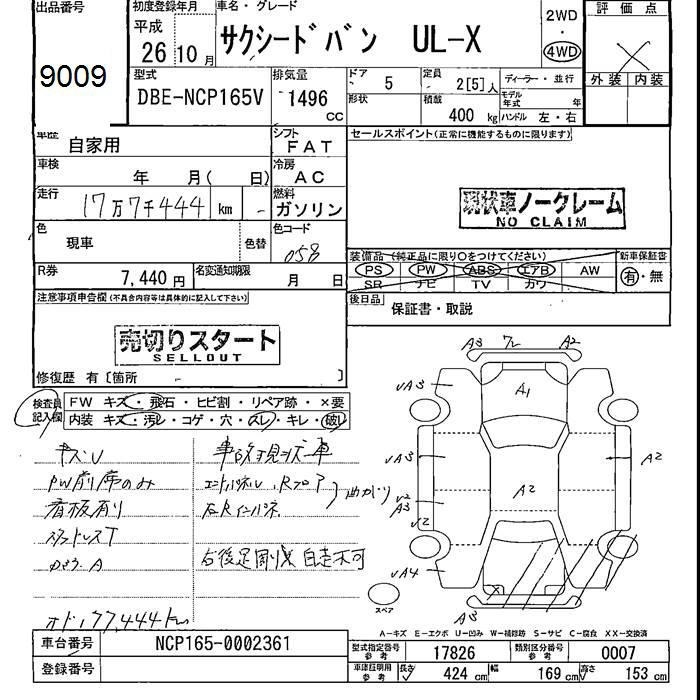 出品番号 初度登録年月 車名・グレード 評価点
9009 平成 26 10月 サクシードバン UL-X 2WD ・ 4WD ×
型式 排気量 ドア 定員 ディーラー・並行 外装 内装
DBE-NCP165V 1496 CC 5 2[5]人 モデル年式 年
形状 積載 400 kg ハンドル 左・右
車歴 自家用 シフト FAT セールスポイント(正常に機能するものに限ります)
車検 年 月( 日) 冷房 AC
走行 17万7千444 km - 燃料 ガソリン
現状車ノークレーム
NO CLAIM
色 現車 色替 色コード 058
装備品(純正品に限り○をつけてください) 新車保証書
PS PW ABS エアB AW 有・無
SR ナビ TV カワ
R券 7,440円 名変通知期限 月 日
後日品 保証書・取説
注意事項申告欄(不具合内容等は具体的に記入して下さい)
売切りスタート
SELLOUT
修復歴 有〔箇所 〕
検査員記入欄 FW キズ・飛石・ヒビ割・リペア跡・×要
内装 キズ・汚レ・コゲ・穴・スレ・キレ・破レ
キズU 事故現状車
PW前席のみ
看板有り
スタッドレスT 曲がり
右後足廻り× 自走不可
オド177,444km
A3 A2
UA3 A1
UA3 A2
A3 A2
U2
UA4
A3
スペア
A―キズ E―エクボ U―凹み W―補修跡 S―サビ C―腐食 XX―交換済
車台番号 NCP165-0002361 型式指定番号 参考 17826 類別区分番号 参考 0007
登録番号 車庫証明用 参考 長さ 424 cm 幅 169 cm 高さ 153 cm